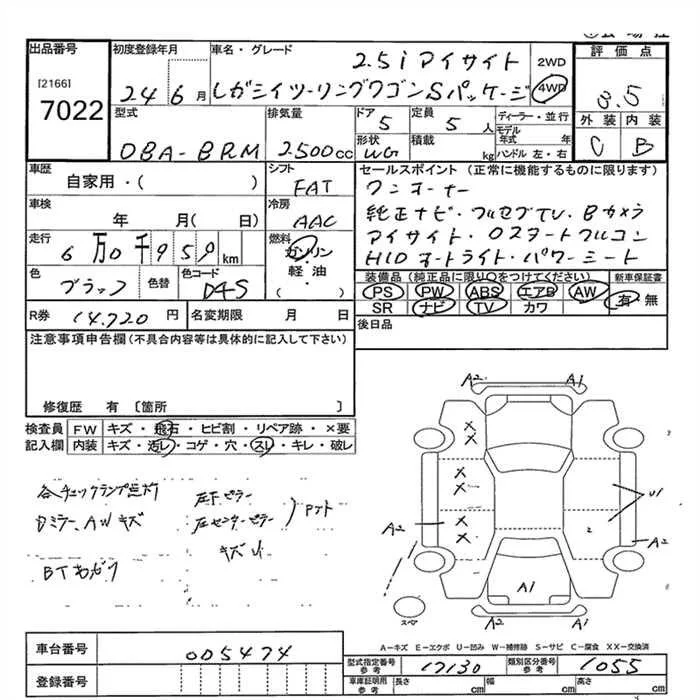 出品番号
[2166]
7022
初度登録年月
24 6月
車名・グレード
2.5i アイサイト
レガシイツーリングワゴンSパッケージ
2WD
4WD
評価点
3.5
外装 内装
C B
型式
DBA-BRM
排気量
2500cc
ドア
5
定員
5人
形状
WG
積載
kg
ディーラー・並行
モデル年式 年
ハンドル 左・右
車歴
自家用・( )
シフト
FAT
セールスポイント (正常に機能するものに限ります)
ワンオーナー
純正ナビ・フルセグTV・Bカメラ
アイサイト・
HIDオートライト・パワーシート
車検
年 月( 日)
冷房
AAC
走行
6万0千959km
燃料
ガソリン
・
軽・油
( )
色
ブラック
色替
色コード
D4S
装備品(純正品に限り○をつけてください)
PS PW ABS エアB AW
SR ナビ TV カワ
新車保証書
有・無
R券 14,720円
名変期限 月 日
後日品
注意事項申告欄(不具合内容等は具体的に記入して下さい)
修復歴 有 〔箇所 〕
検査員記入欄
FW キズ・飛石・ヒビ割・リペア跡・×要
内装 キズ・汚レ・コゲ・穴・スレ・キレ・破レ
各チェックランプ点灯
Dミラー、AWキズ
左下ピラー
左センターピラー
キズ
A2 A1
X
X
X
X
X
X
U1
A2
2
A2
A1
A2 A1
スペア
A-キズ E-エクボ U-凹み W-補修跡 S-サビ C-腐食 XX-交換済
車台番号
005474
登録番号
型式指定番号 参考
17130
類別区分番号 参考
1055
車庫証明用 参考
長さ cm
幅 cm
高さ cm